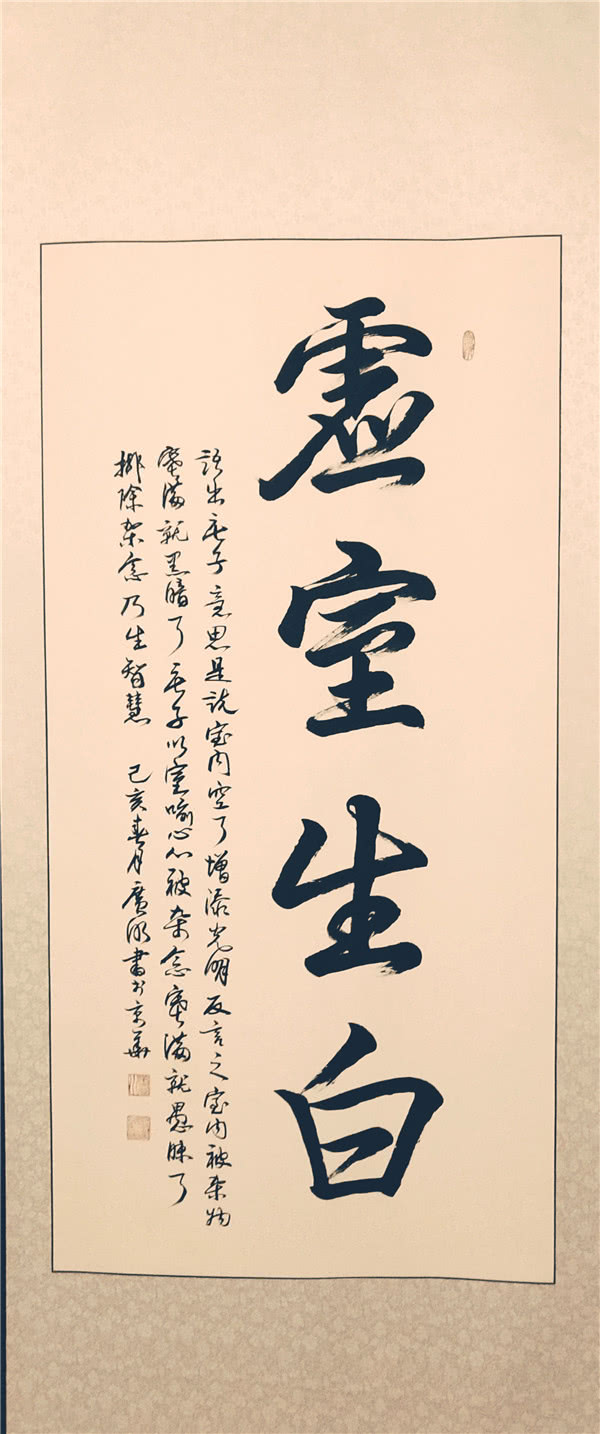 虚室生白
語出莊子意思是说室内空了增添光明反言之室内被杂物
塞滿就黑暗了莊子以室喻心心被杂念塞滿就愚昧了
排除杂念乃生智慧 己亥春月廣明書於京華